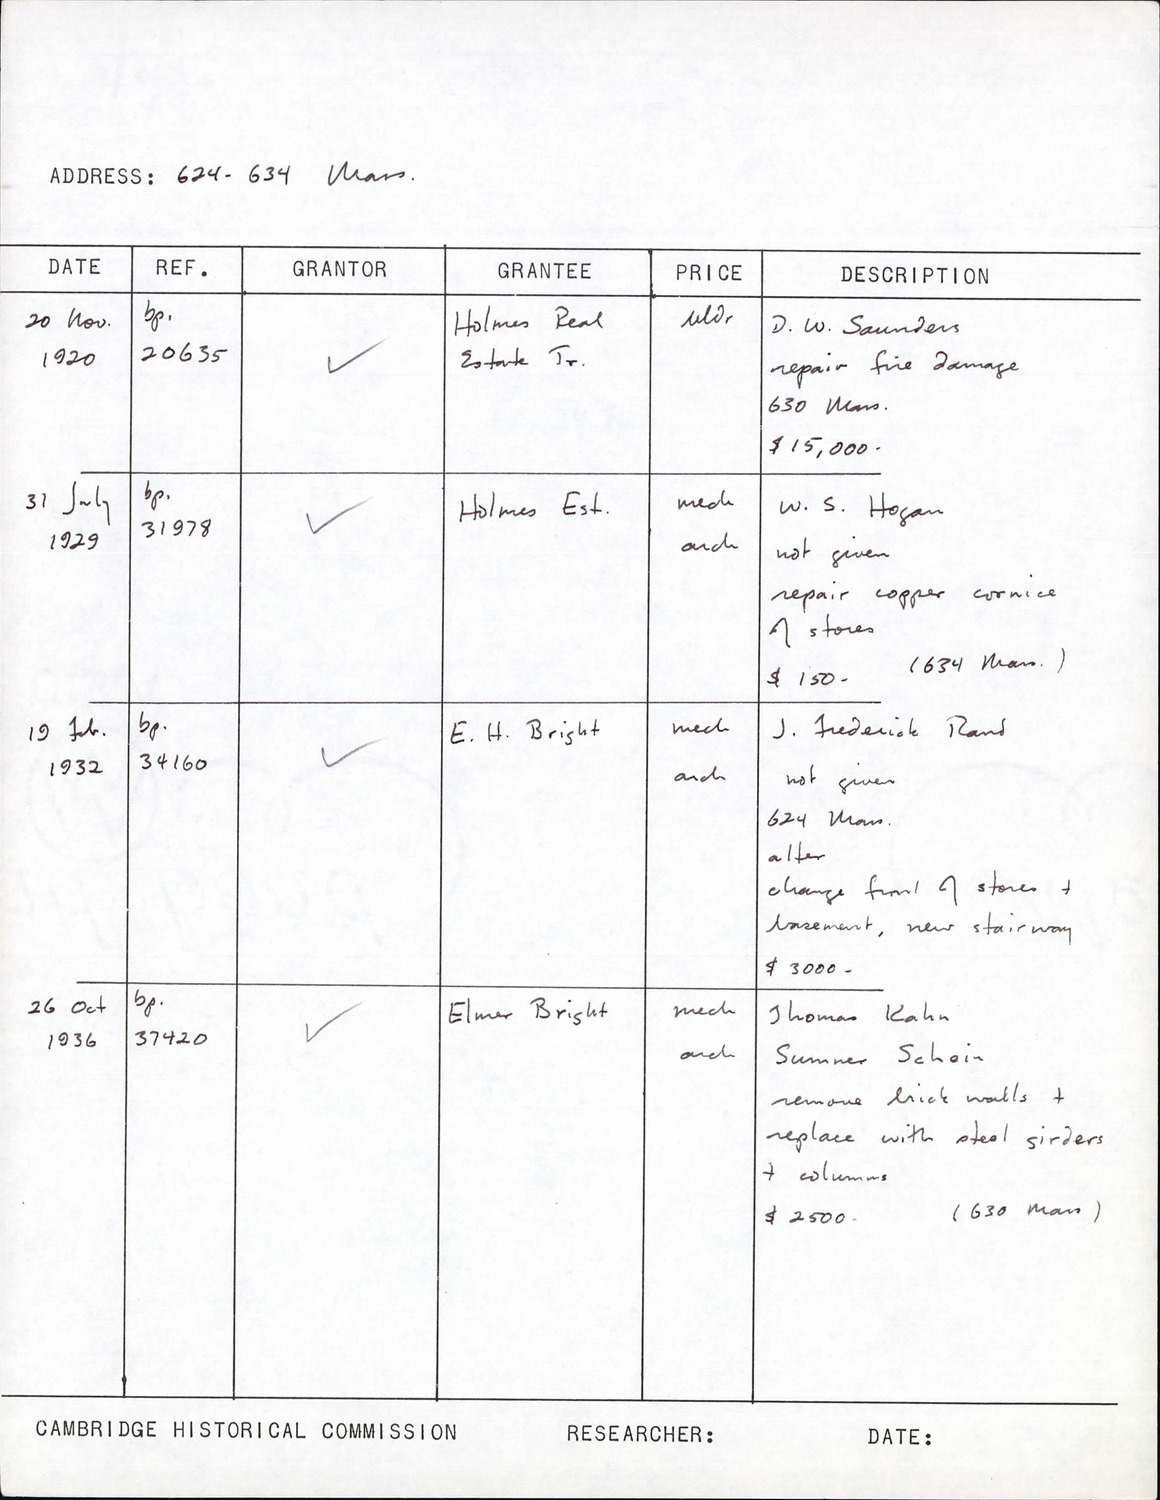 ADDRESS: 624-634 Mass.
DATE REF. GRANTOR GRANTEE PRICE DESCRIPTION
20 Nov. bp. Holmes Real bldr D. W. Saunders
1920 20635 ✓ Estate Tr. repair fire damage
630 Mass.
$15,000-
31 July bp. Holmes Est. mech W. S. Hogan
1929 31978 ✓ arch not given
repair copper cornice
of stores
$ 150- (634 Mass.)
19 Feb. bp. E. H. Bright mech J. Frederick Rand
1932 34160 ✓ arch not given
624 Mass.
alter
change front of stores +
basement, new stairway
$ 3000-
26 Oct bp. Elmer Bright mech Thomas Kahn
1936 37420 ✓ arch Sumner Schein
remove brick walls +
replace with steel girders
+ columns
$ 2500- (630 Mass)
CAMBRIDGE HISTORICAL COMMISSION RESEARCHER: DATE: